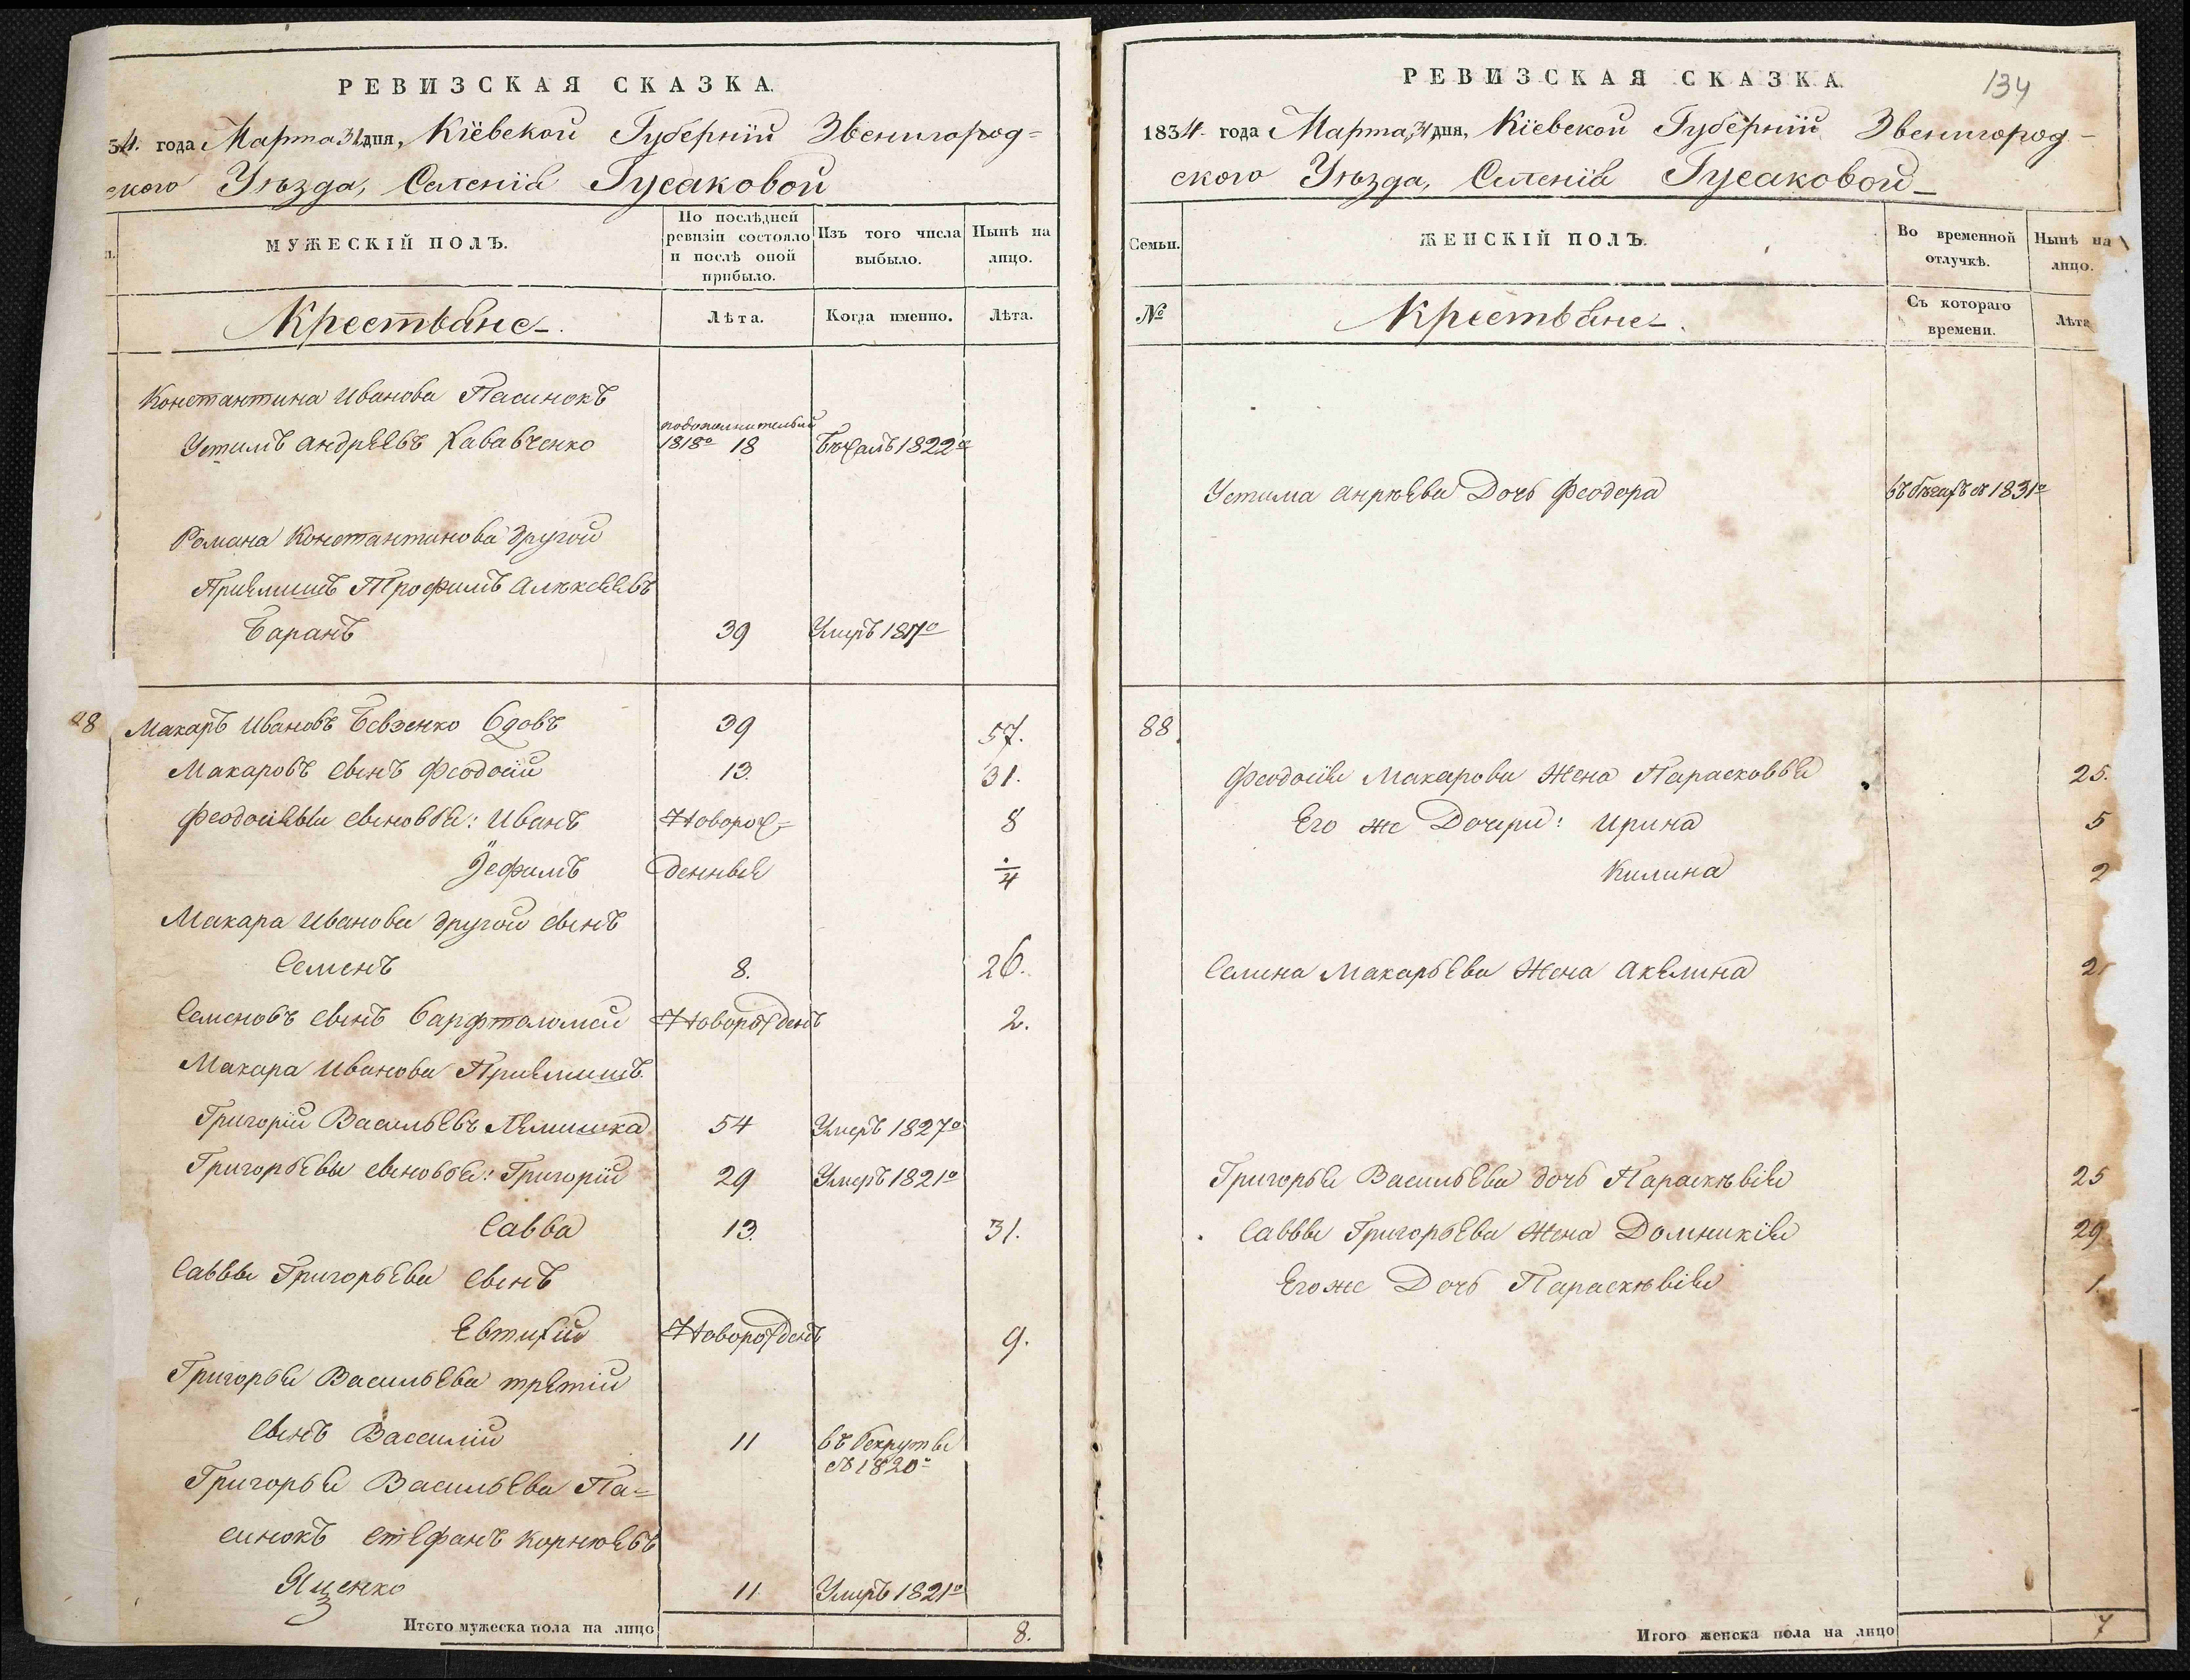 РЕВИЗСКАЯ СКАЗКА.
34. года Марта 31 дня, Кіевской Губерніи Звенигород=
ского Уѣзда, Селенія Гусаковой
МУЖЕСКІЙ ПОЛЪ.
По послѣдней ревизіи состояло и послѣ оной прибыло.
Изъ того числа выбыло.
Нынѣ на лицо.
Крестьяне
Лѣта.
Когда именно.
Лѣта.
Константина Иванова Пасинокъ
Устимъ Андреевъ 1818го 18 Бѣжалъ 1822го
Романа Константинова другой
Приемишъ Трофимъ Алексеевъ
Баранъ 39 Умеръ 1817го
88 Макаръ Ивановъ Бевзенко Вдовъ 39 57.
Макаровъ сынъ Феодосій 13. 31.
Феодосіевы сыновья: Иванъ Новорож= 8
Уефимъ денныя 4
Макара Иванова другой сынъ
Семенъ 8. 26.
Семеновъ сынъ Варфтоломей Новорожденъ 2.
Макара Иванова Приемишъ
Григорій Васильевъ Лемишка 54 Умеръ 1827го
Григорьевы сыновья: Григорій 29 Умеръ 1821го
Савва 13. 31.
Саввы Григорьева сынъ
Евтихій Новорожденъ 9.
Григорья Васильева третій
сынъ Василий 11 въ рекруты
въ 1820го
Григорья Васильева Па=
синокъ Стефанъ Корнюевъ
Яценко 11 Умеръ 1821го
Итого мужеска пола на лицо 8.
РЕВИЗСКАЯ СКАЗКА.
134
1834 года Марта 31 дня, Кіевской Губерніи Звенигород-
ского Уѣзда, Селенія Гусаковой
Семьи.
ЖЕНСКІЙ ПОЛЪ.
Во временной отлучкѣ.
Нынѣ на лицо.
№
Крестьяне
Съ котораго времени.
Лѣта
Устима Анрѣева Дочь Феодора въ бѣгахъ съ 1831го
88
Феодосія Макарова Жена Парасковья 25.
Его же Дочери: Ирина 5
Килина 2
Семена Макарьева Жена Акелина
Григорья Васильева дочь Параскѣвія 25
Саввы Григорьева Жена Домникія 29
Егоже Дочь Параскѣвія 1
Итого женска пола на лицо 7